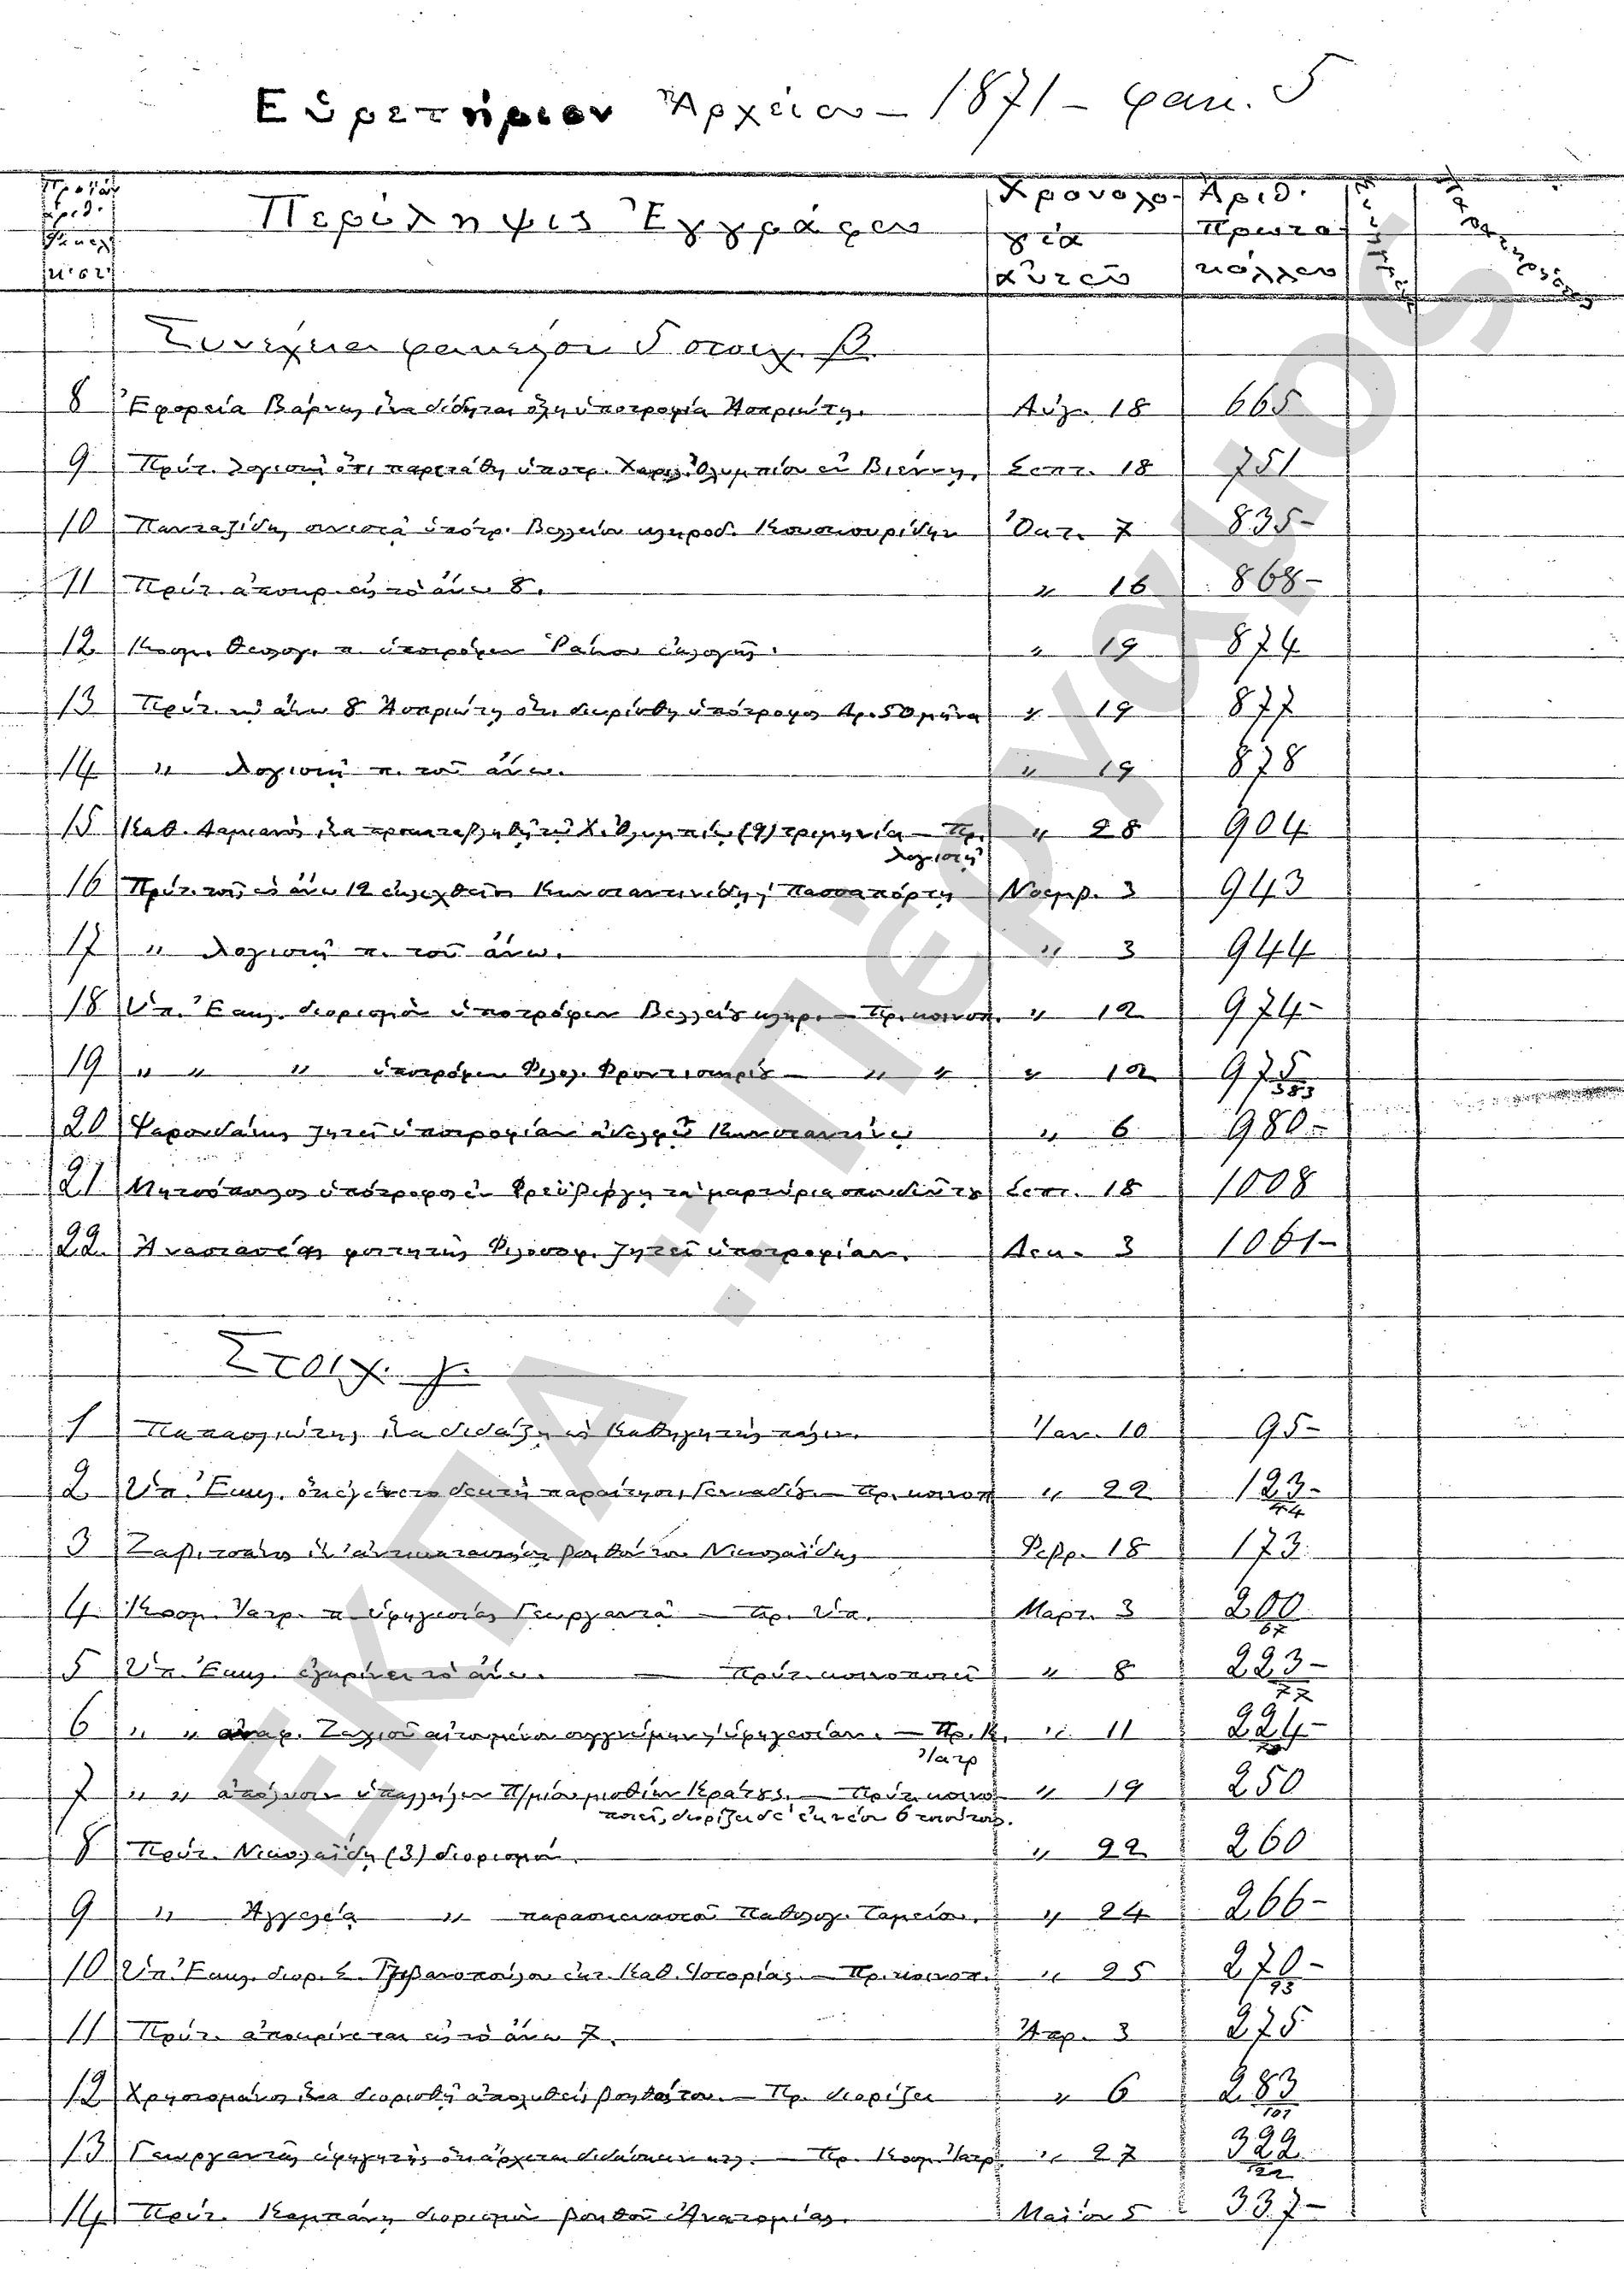 Εὑρετήριον Ἀρχείου – 1871 – φακ. 5
Περίληψις Ἐγγράφου
Χρονολογία αὐτοῦ
Ἀριθ. Πρωτοκόλλου
Συνέχεια φακέλου 5 στοιχ. β.
8 Ἐφορεία Βάρνης ἵνα δίδηται ὅλη ὑποτροφία Ἀσπριώτῃ. Αὐγ. 18 665
9 Πρύτ. Λογιστῇ ὅτι παρετάθη ὑποτρ. Χαρ. Ὀλυμπίου ἐν Βιέννῃ. Σεπτ. 18 751
10 Πανταζίδης συνιστᾷ ὑπότρ. Βελλείου κληροδ. Ὀκτ. 7 835–
11 Πρύτ. ἀποκρ. εἰς τὸ ἄνω 8. " 16 868–
12 Κοσμ. Θεολογ. π. ὑποτρόφων Ῥάλλη ἐκλογῆς. " 19 874
13 Πρύτ. τῷ ἄνω 8 Ἀσπριώτῃ ὅτι διωρίσθη ὑπότροφος δρ. 50 μῆνα " 19 877
14 " Λογιστῇ π. τοῦ ἄνω. " 19 878
15 Καθ. Δαμιανὸς ἵνα προκαταβληθῇ τῷ Χ. Ὀλυμπίῳ (9) τριμηνία – Πρ. Λογιστῇ " 28 904
16 Πρύτ. τοῖς ἐν ἄνω 12 ἐκλεχθεῖσι Κωνσταντινίδῃ, Πασσαπόρτῃ Νοεμβ. 3 943
17 " Λογιστῇ π. τοῦ ἄνω. " 3 944
18 Ὑπ. Ἐκκλ. διορισμὸν ὑποτρόφων Βελλείου κληρ. – Πρ. κοινοπ. " 12 974–
19 " " " ὑποτρόφου Φιλολ. Φροντιστηρίου – " " " 12 975 383
20 ζητεῖ ὑποτροφίαν ἀδελφῷ Κωνσταντίνῳ " 6 980–
21 Μητσόπουλος ὑπότροφος ἐν Φρειβέργῃ τὰ μαρτύρια σπουδῶν του Σεπτ. 18 1008
22 φοιτητὴς Φιλοσοφ. ζητεῖ ὑποτροφίαν. Δεκ. 3 1061–
Στοιχ. γ.
1 Παπασλιώτης ἵνα διδάξῃ ὡς Καθηγητὴς πάλιν. Ἰαν. 10 95–
2 Ὑπ. Ἐκκλ. δεκτὴ παραίτησις Γενναδίου – Πρ. κοινοπ. " 22 123– 44
3 Ζαβιτσάνος ἵν' ἀντικαταστήσῃ βοηθόν του Νικολαΐδης Φεβρ. 18 173
4 Κοσμ. Ἰατρ. π. ὑφηγεσίας Γεωργαντᾶ – Πρ. Ὑπ. Μαρτ. 3 200 67
5 Ὑπ. Ἐκκλ. ἐγκρίνει τὸ ἄνω. – Πρύτ. κοινοποιεῖ " 8 223– 77
6 " " ἀναφ. Ζαλίου αἰτουμένου ὑφηγεσίαν. – Πρ. Κ. Ἰατρ " 11 224–
7 " " ἀπόλυσιν ὑπαλλήλων Π/μίου μισθῶν Κράτους. – Πρύτ. κοινοποιεῖ, διορίζει δὲ ἐκ νέου " 19 250
8 Πρύτ. Νικολαΐδῃ (3) διορισμόν. " 22 260
9 " Ἀγγελέᾳ " παρασκευαστοῦ Παθολογ. Ταμείου. " 24 266–
10 Ὑπ. Ἐκκλ. διορ. Ἰ. Τζιβανοπούλου ἐκτ. Καθ. Ἱστορίας. – Πρ. κοινοπ. " 25 270– 95
11 Πρύτ. ἀποκρίνεται εἰς τὸ ἄνω 7. Ἀπρ. 3 275
12 Χρηστομάνος ἵνα διορισθῇ ἀπολυθεὶς βοηθός του. – Πρ. διορίζει " 6 283 101
13 Γεωργαντᾶς ὑφηγητὴς ὅτι ἄρχεται διδάσκων κτλ. – Πρ. Κοσμ. Ἰατρ. " 27 322 122
14 Πρύτ. Καμπάνῃ διορισμὸν βοηθοῦ Ἀνατομίας. Μαΐου 5 337–
ΕΚΠΑ: Πέργαμος